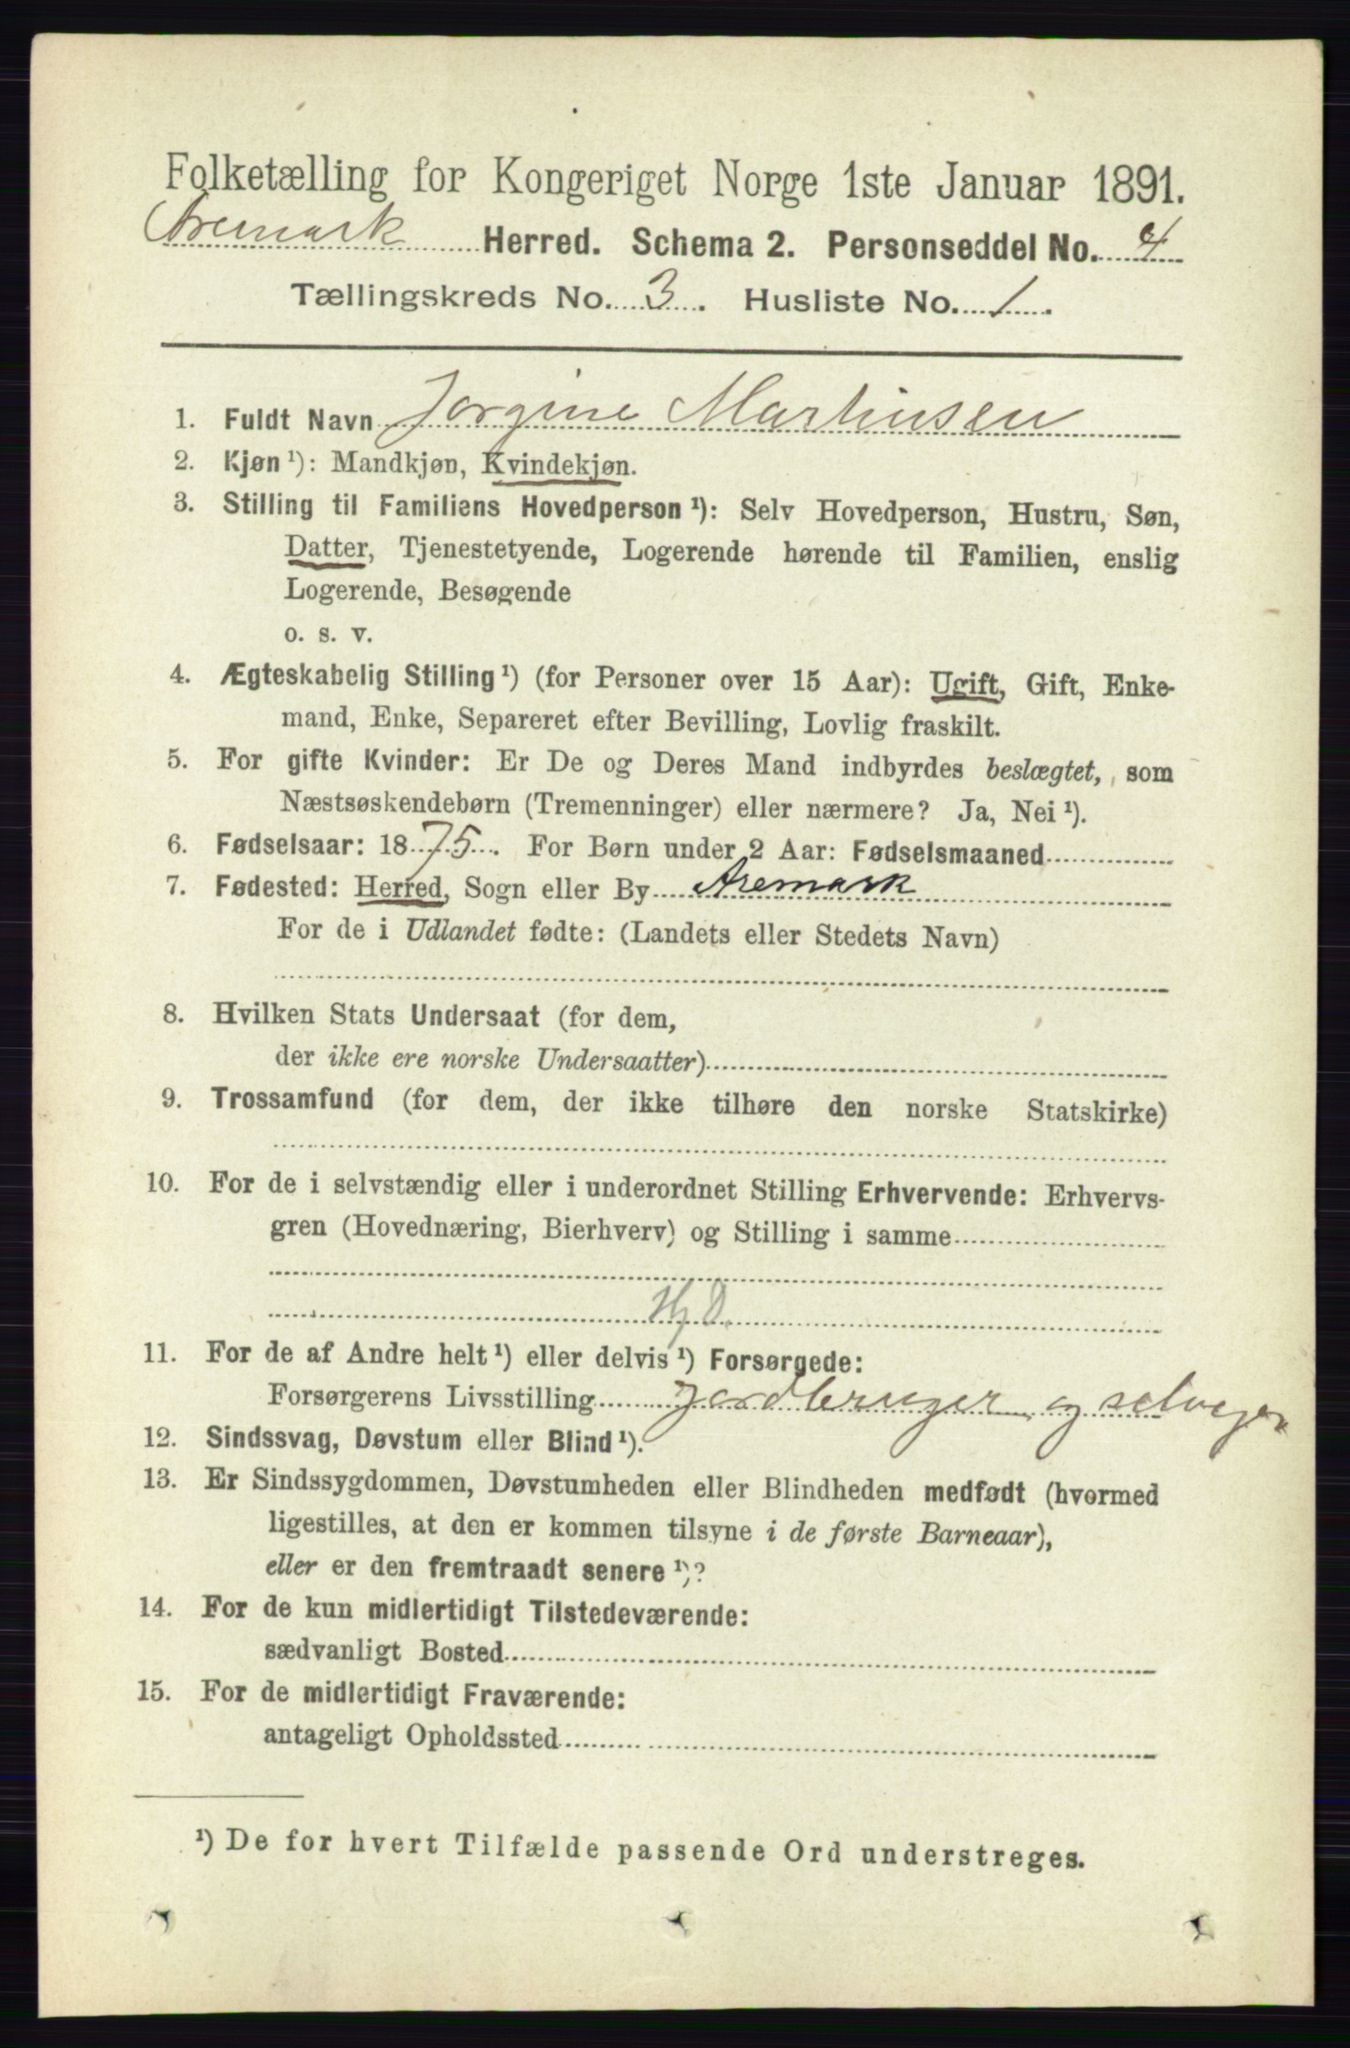 Folketælling for Kongeriget Norge 1ste Januar 1891.
Aremark Herred. Schema 2. Personseddel No. 4
Tællingskreds No. 3. Husliste No. 1.
1. Fuldt Navn Jorgine Martinsen
2. Kjøn ¹): Mandkjøn, Kvindekjøn.
3. Stilling til Familiens Hovedperson ¹): Selv Hovedperson, Hustru, Søn,
Datter, Tjenestetyende, Logerende hørende til Familien, enslig
Logerende, Besøgende
o. s. v.
4. Ægteskabelig Stilling ¹) (for Personer over 15 Aar): Ugift, Gift, Enke-
mand, Enke, Separeret efter Bevilling, Lovlig fraskilt.
5. For gifte Kvinder: Er De og Deres Mand indbyrdes beslægtet, som
Næstsøskendebørn (Tremenninger) eller nærmere? Ja, Nei ¹).
6. Fødselsaar: 1875. For Børn under 2 Aar: Fødselsmaaned
7. Fødested: Herred, Sogn eller By Aremark
For de i Udlandet fødte: (Landets eller Stedets Navn)
8. Hvilken Stats Undersaat (for dem,
der ikke ere norske Undersaatter)
9. Trossamfund (for dem, der ikke tilhøre den norske Statskirke)
10. For de i selvstændig eller i underordnet Stilling Erhvervende: Erhvervs-
gren (Hovednæring, Bierhverv) og Stilling i samme
Hj D.
11. For de af Andre helt ¹) eller delvis ¹) Forsørgede:
Forsørgerens Livsstilling Jordbruger og selveger
12. Sindssvag, Døvstum eller Blind ¹).
13. Er Sindssygdommen, Døvstumheden eller Blindheden medfødt (hvormed
ligestilles, at den er kommen tilsyne i de første Barneaar),
eller er den fremtraadt senere ¹)?
14. For de kun midlertidigt Tilstedeværende:
sædvanligt Bosted
15. For de midlertidigt Fraværende:
antageligt Opholdssted
¹) De for hvert Tilfælde passende Ord understreges.